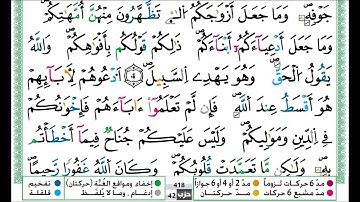 جَوْفِهِۦۖ وَمَا جَعَلَ أَزْوَٰجَكُمُ اُ۬لَّٰٓـِٔے تَظَّهَّرُونَ مِنْهُنَّ أُمَّهَٰتِكُمْۖ
وَمَا جَعَلَ أَدْعِيَآءَكُمُۥٓ أَبْنَآءَكُمْۖ ذَٰلِكُمْ قَوْلُكُم بِأَفْوَٰهِكُمْۖ وَاللَّهُ
يَقُولُ اُ۬لْحَقَّۖ وَهُوَ يَهْدِے اِ۬لسَّبِيلَۖ 4 اَ۟دْعُوهُمْ لِأٓبَآئِهِمْ
هُوَ أَقْسَطُ عِندَ اَ۬للَّهِۖ فَإِن لَّمْ تَعْلَمُوٓاْ ءَابَآءَهُمْ فَإِخْوَٰنُكُمْ
فِے اِ۬لدِّينِ وَمَوَٰلِيكُمْۖ وَلَيْسَ عَلَيْكُمْ جُنَاحٌ فِيمَآ أَخْطَأْتُم
بِهِۦۖ وَلَٰكِن مَّا تَعَمَّدَتْ قُلُوبُكُمْۖ وَكَانَ اَ۬للَّهُ غَفُورًا رَّحِيمًا
مدّ 6 حركات لزوماً مدّ 2 أو 4 أو 6 جوازاً 418 حزب 42 إخفاء، ومواقع الغنّة (حركتان) تفخيم
مدّ مشبع 6 حركات مدّ حركتان إدغام، وما لا يلفظ قلقلة